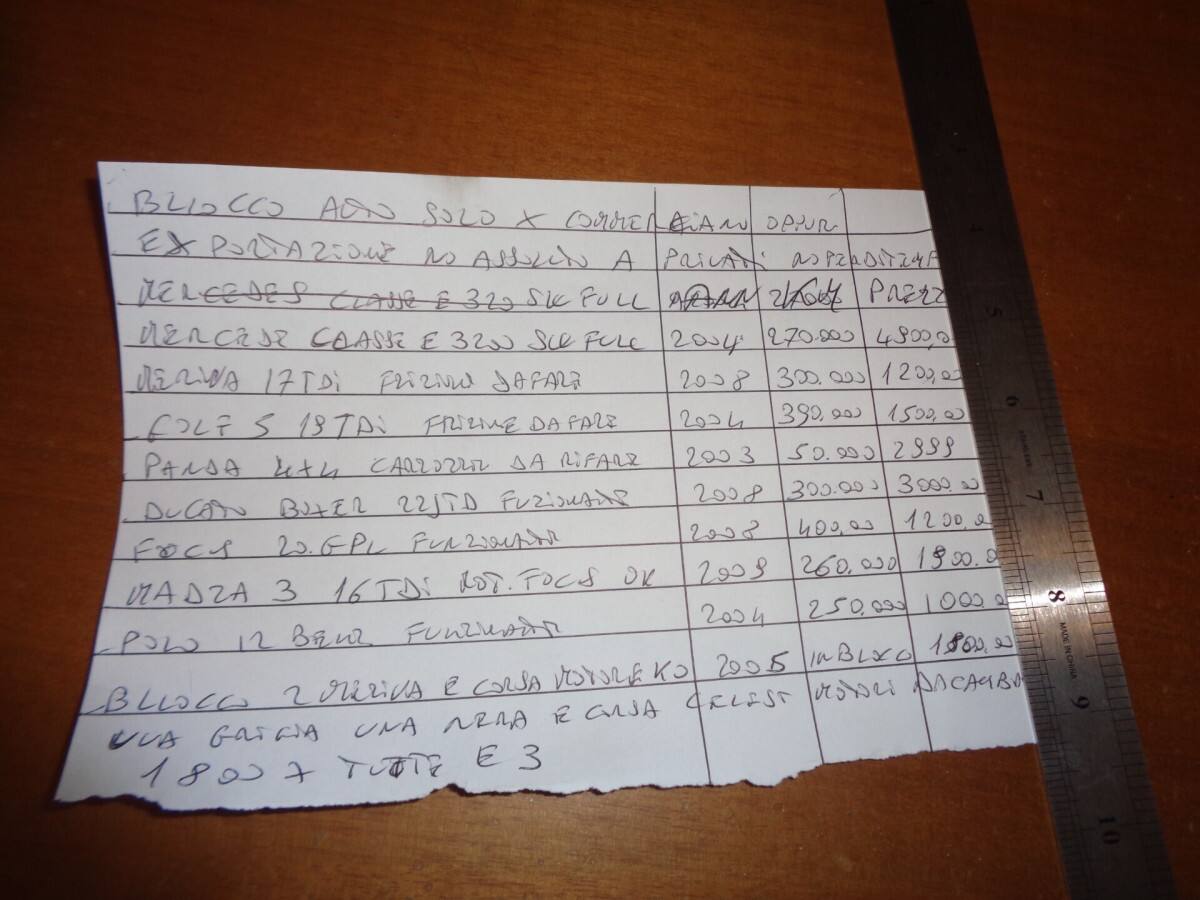 BLLOCCO AUTO SOLO X COMMERCIANO OPPUR
EX PORTAZIONE NO ASSOLUTO A PRIVATI NO PERDITEMP
MERCEDES CLASSE E 320 SW FULL PREZZ
MERCEDE CLASSE E 320 SW FULL 2004 270.000 4900,0
MERIVA 17 TDI FRIZIONE DAFARE 2008 300.000 1200,00
GOLF 5 19 TDI FRIZINE DAFARE 2004 390.000 1500,00
PANDA 4X4 CARROZZER DA RIFARE 2003 50.000 2999
DUCATO BOXER 22JTD FUZIONANTE 2008 300.000 3000.00
FOCUS 20.GPL FUNZIONANTE 2008 400,00 1200.0
MADZA 3 16 TDI MOT.FOCUS OK 2009 260.000 1900.0
POLO 12 BENZ FUNZINANTE 2004 250.000 1000.0
BLLOCCO 2 MERIVA E CORSA MOTORE KO 2005 IN BLOCO 1800.00
UUA GRIGIA UNA NERA E CORSA CELEST MOTORI DACAMBI
1800 X TUTTE E 3
5
6
7
8
MADE IN CHINA
9
10